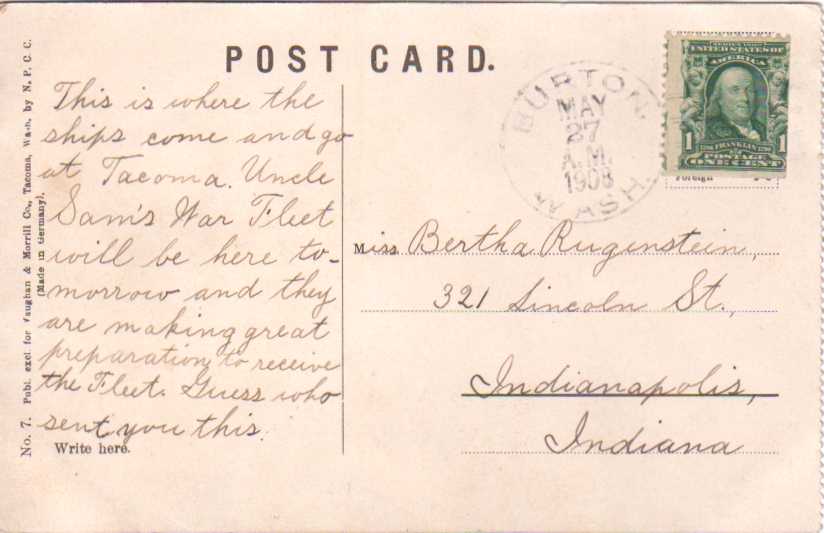 POST CARD.
This is where the
ships come and go
at Tacoma. Uncle
Sam's War Fleet
will be here to-
morrow and they
are making great
preparation to receive
the Fleet. Guess who
sent you this.
Write here.
No. 7. Publ. excl. for Vaughan & Morrill Co., Tacoma, Wash. by N. P. C. C.
(Made in Germany).
BURTON
MAY
27
A.M.
1908
WASH.
UNITED STATES OF
AMERICA
1 FRANKLIN 1
POSTAGE
ONE CENT
Foreign
Miss Bertha Rugenstein,
321 Lincoln St.,
Indianapolis,
Indiana